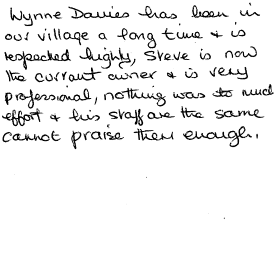 Wynne Davies has been in
our village a long time & is
respected highly, Steve is now
the currant owner & is very
professional, nothing was to much
effort & his staff are the same
cannot praise them enough.